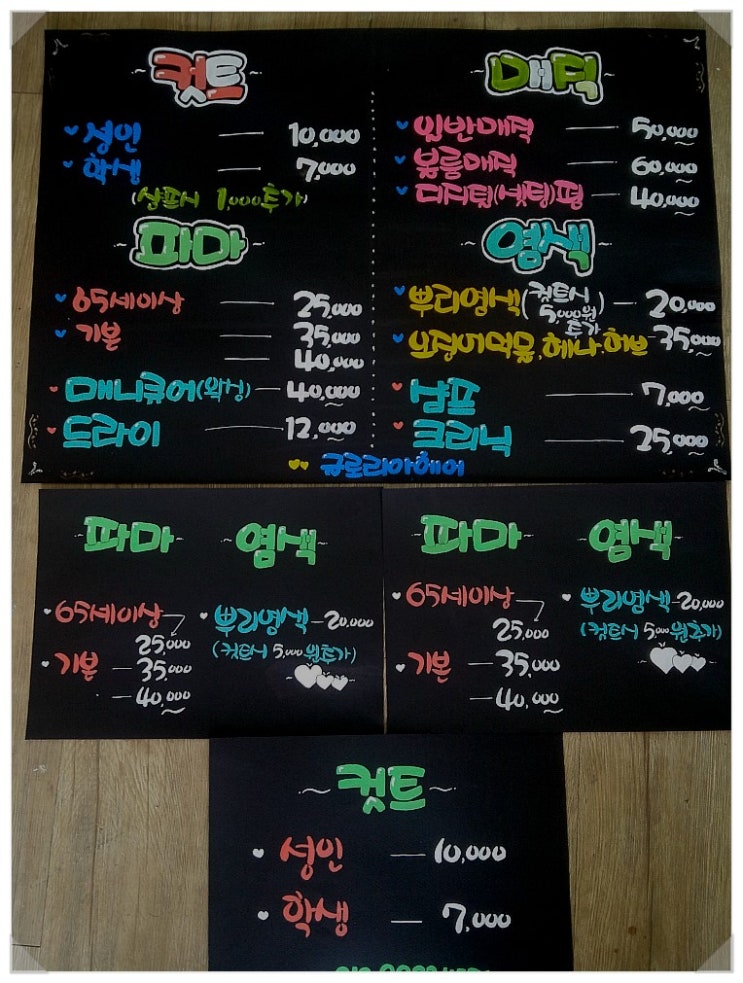 ~컷트~
성인 — 10,000
학생 — 7,000
(샴푸시 1,000추가)
~파마~
65세이상 — 25,000
기본 — 35,000
— 40,000
매니큐어(왁싱) — 40,000
드라이 — 12,000
~매직~
일반매직 — 50,000~
볼륨매직 — 60,000~
디지털(셋팅)펌 — 40,000~
~염색~
뿌리염색(컷트시 5,000원 추가) — 20,000
오징어먹물,헤나,허브 — 35,000~
샴푸 — 7,000~
크리닉 — 25,000~
규로리아헤어
~파마~
65세이상
25,000
기본 — 35,000
— 40,000~
~염색~
뿌리염색 — 20,000
(컷트시 5,000원추가)
~파마~
65세이상
25,000
기본 — 35,000
— 40,000~
~염색~
뿌리염색 — 20,000
(컷트시 5,000원추가)
~컷트~
성인 — 10,000
학생 — 7,000